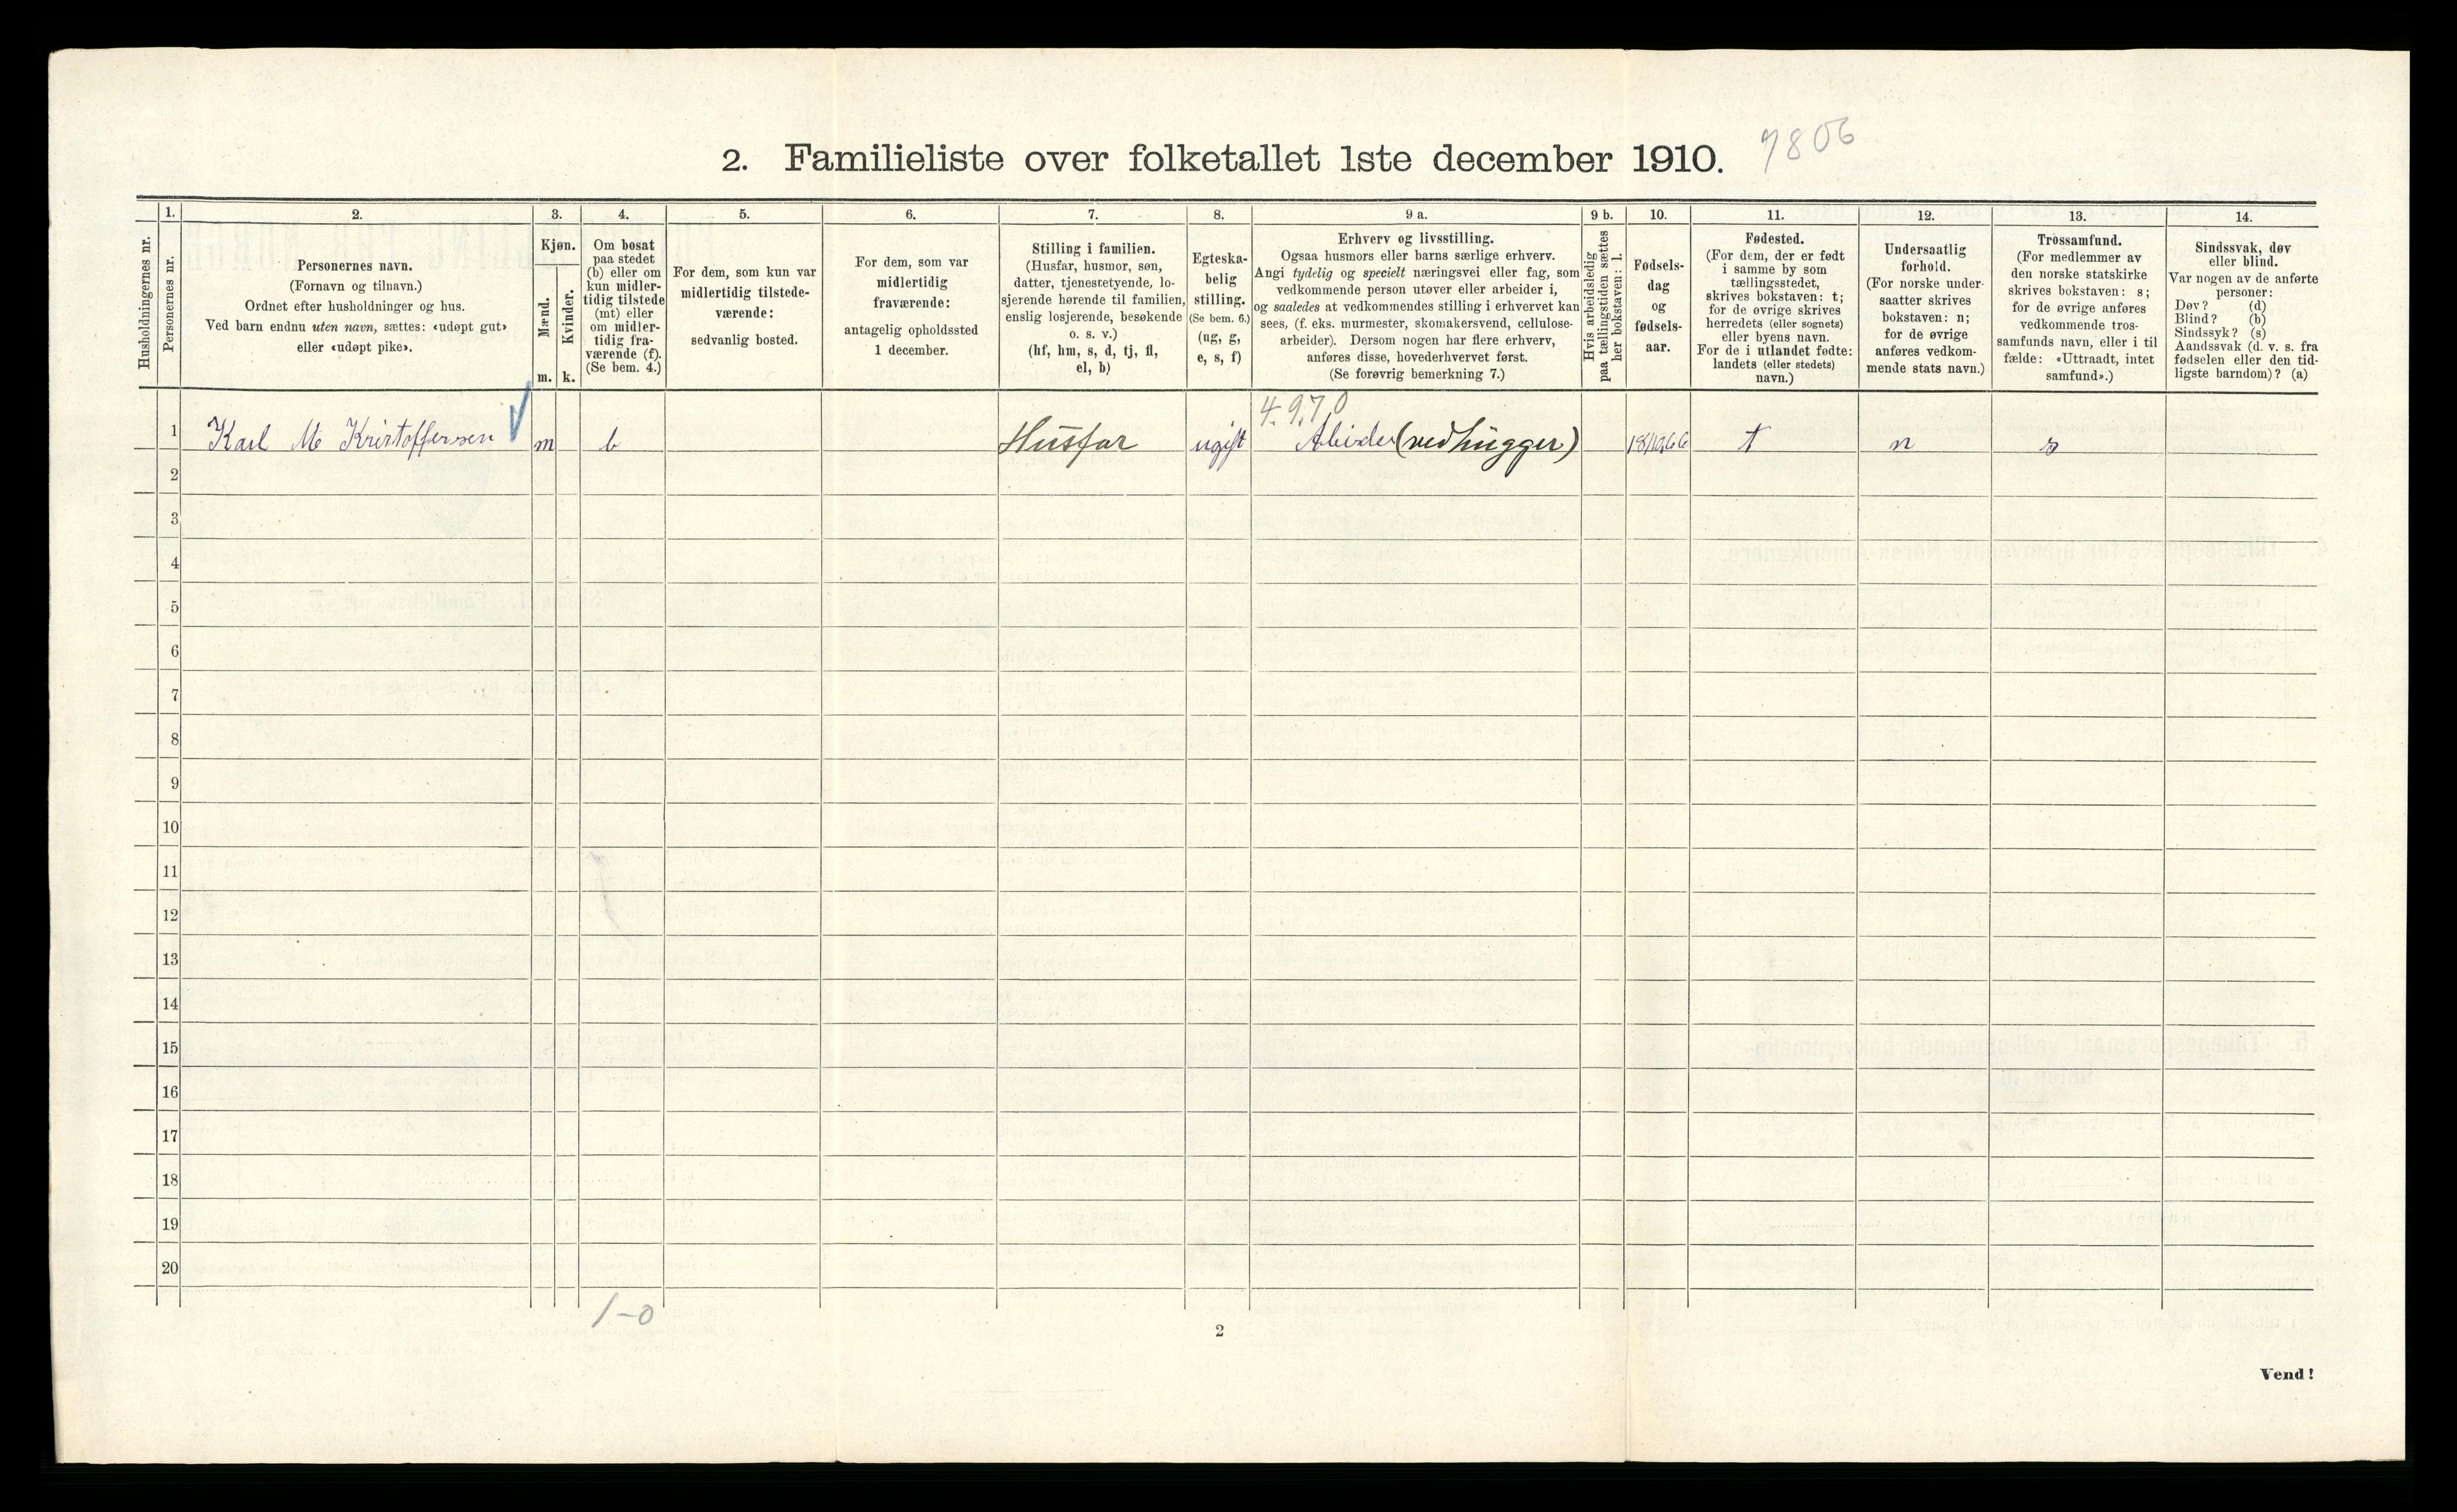 2. Familieliste over folketallet 1ste december 1910.
7806
Husholdningernes nr.
1.
Personernes nr.
2.
Personernes navn.
(Fornavn og tilnavn.)
Ordnet efter husholdninger og hus.
Ved barn endnu uten navn, sættes: «udøpt gut»
eller «udøpt pike».
3.
Kjøn.
Mænd.
Kvinder.
m. k.
4.
Om bosat
paa stedet
(b) eller om
kun midler-
tidig tilstede
(mt) eller
om midler-
tidig fra-
værende (f).
(Se bem. 4.)
5.
For dem, som kun var
midlertidig tilstede-
værende:
sedvanlig bosted.
6.
For dem, som var
midlertidig
fraværende:
antagelig opholdssted
1 december.
7.
Stilling i familien.
(Husfar, husmor, søn,
datter, tjenestetyende, lo-
sjerende hørende til familien,
enslig losjerende, besøkende
o. s. v.)
(hf, hm, s, d, tj, fl,
el, b)
8.
Egteska-
belig
stilling.
(Se bem. 6.)
(ug, g,
e, s, f)
9 a.
Erhverv og livsstilling.
Ogsaa husmors eller barns særlige erhverv.
Angi tydelig og specielt næringsvei eller fag, som
vedkommende person utøver eller arbeider i,
og saaledes at vedkommendes stilling i erhvervet kan
sees, (f. eks. murmester, skomakersvend, cellulose-
arbeider). Dersom nogen har flere erhverv,
anføres disse, hovederhvervet først.
(Se forøvrig bemerkning 7.)
9 b.
Hvis arbeidsledig
paa tællingstiden sættes
her bokstaven: l.
10.
Fødsels-
dag
og
fødsels-
aar.
11.
Fødested.
(For dem, der er født
i samme by som
tællingsstedet,
skrives bokstaven: t;
for de øvrige skrives
herredets (eller sognets)
eller byens navn.
For de i utlandet fødte:
landets (eller stedets)
navn.)
12.
Undersaatlig
forhold.
(For norske under-
saatter skrives
bokstaven: n;
for de øvrige
anføres vedkom-
mende stats navn.)
13.
Trossamfund.
(For medlemmer av
den norske statskirke
skrives bokstaven: s;
for de øvrige anføres
vedkommende tros-
samfunds navn, eller i til
fælde: «Uttraadt, intet
samfund».)
14.
Sindssvak, døv
eller blind.
Var nogen av de anførte
personer:
Døv? (d)
Blind? (b)
Sindssyk? (s)
Aandssvak (d. v. s. fra
fødselen eller den tid-
ligste barndom)? (a)
4.970
1 Karl M Kristoffersen m b Husfar ugift Abeider (vedhugger) t n s
2
3
4
5
6
7
8
9
10
11
12
13
14
15
16
17
18
19
20
1-0
2
Vend!